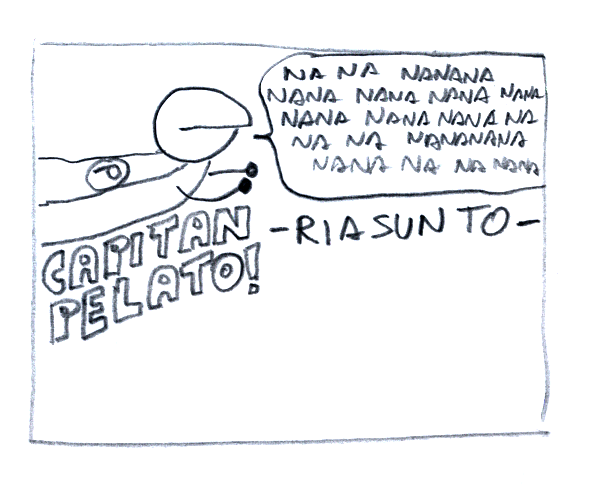 NA NA NANANA
NANA NANA NANA NANA
NANA NANA NANA NA
NA NA NANANANA
NANA NA NA NANA
P
CAPITAN
PELATO!
-RIASUNTO-